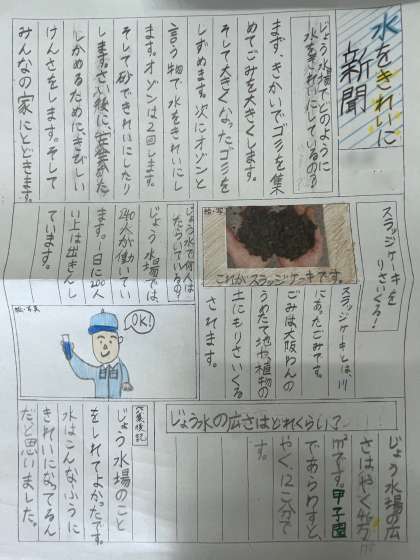 水をきれいに
新聞
じょう水場でどのように
水をきれいにしているの？
まず、きかいでゴミを集
めてごみを大きくします。
そして大きくなったゴミを
しずめます。次にオゾンと
言う物で水をきれいにし
ます。オゾンは2回します。
そして砂できれいにしたり
します。さい後に安全かた
しかめるためにきびしい
けんさをします。そして
みんなの家にとどきます。
スラッジケーキを
りさいくる！
これがスラッジケーキです。
スラッジケーキとは、川
にあったごみです。
ごみは大阪わんの
うめたて地や、植物の
土にもりさいくる
されます。
じょう水で何人は
たらいているの？
じょう水場では、
240人が働いてい
ます。一日に200人
い上は出きんし
ています。
絵・写真
OK!
じょう水の広さはどれくらい？
じょう水場の広
さはやく46万
m²です。甲子園
であらわすと、
やく、12こ分で
す。
へん集後記
じょう水場のこと
をしれてよかったです。
水はこんなふうに
きれいになってるん
だと思いました。